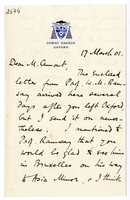 2574
CHRIST CHURCH
OXFORD
17 March 01.
Dear M. Cumont,
The Enclosed
letter from Prof. W. M. Ram-
say arrived here several
Days after you left Oxford
but I send it on never-
theless. I mentioned to
Prof. Ramsay that you
would be glad to see him
in Bruxelles on his way
to Asia Minor & I think